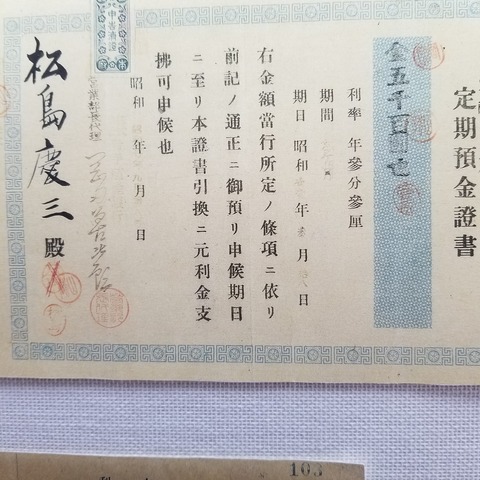 定期預金證書
金五千百圓也
利率 年參分參厘
期間
期日 昭和 年 月 日
右金額當行所定ノ條項ニ依リ
前記ノ通正ニ御預リ申候期日
ニ至リ本證書引換ニ元利金支
拂可申候也
昭和 年 月 日
營業部長代理
松島慶三殿
103